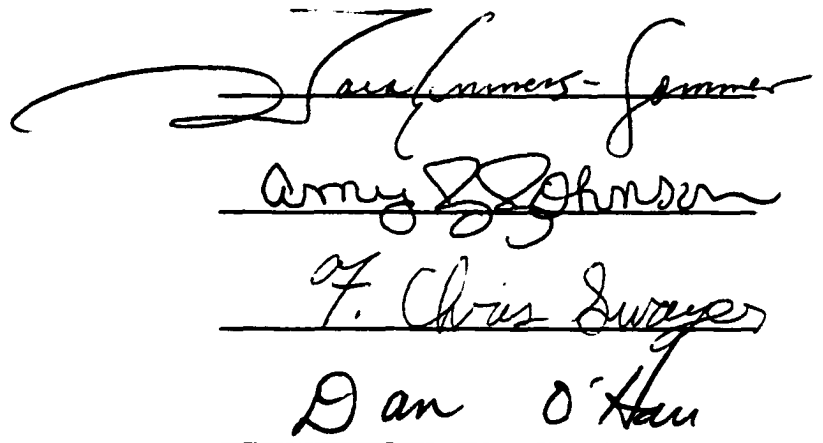 Tara Emmers-Sommer
Amy J Johnson
F. Chris Swayer
Dan O'Hair